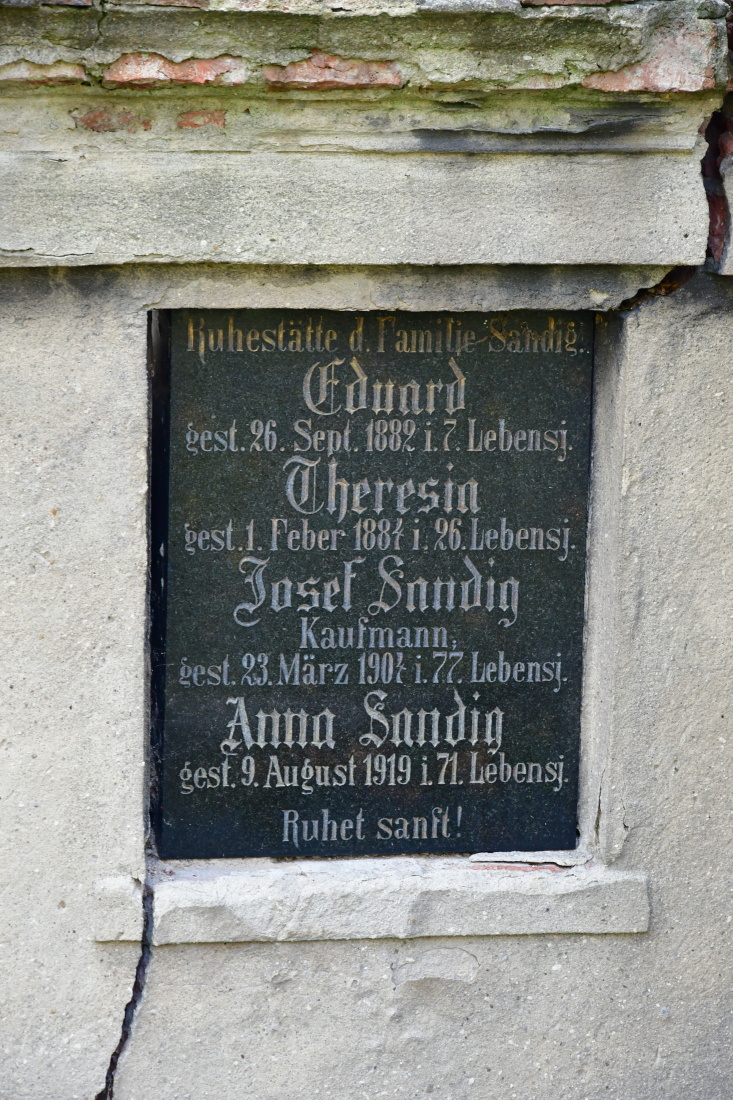 Ruhestätte d. Familie Sandig.
Eduard
gest. 26. Sept. 1882 i. 7. Lebensj.
Theresia
gest. 1. Feber 1884 i. 26. Lebensj.
Josef Sandig
Kaufmann,
gest. 23. März 1904 i. 77. Lebensj.
Anna Sandig
gest. 9. August 1919 i. 71. Lebensj.
Ruhet sanft!